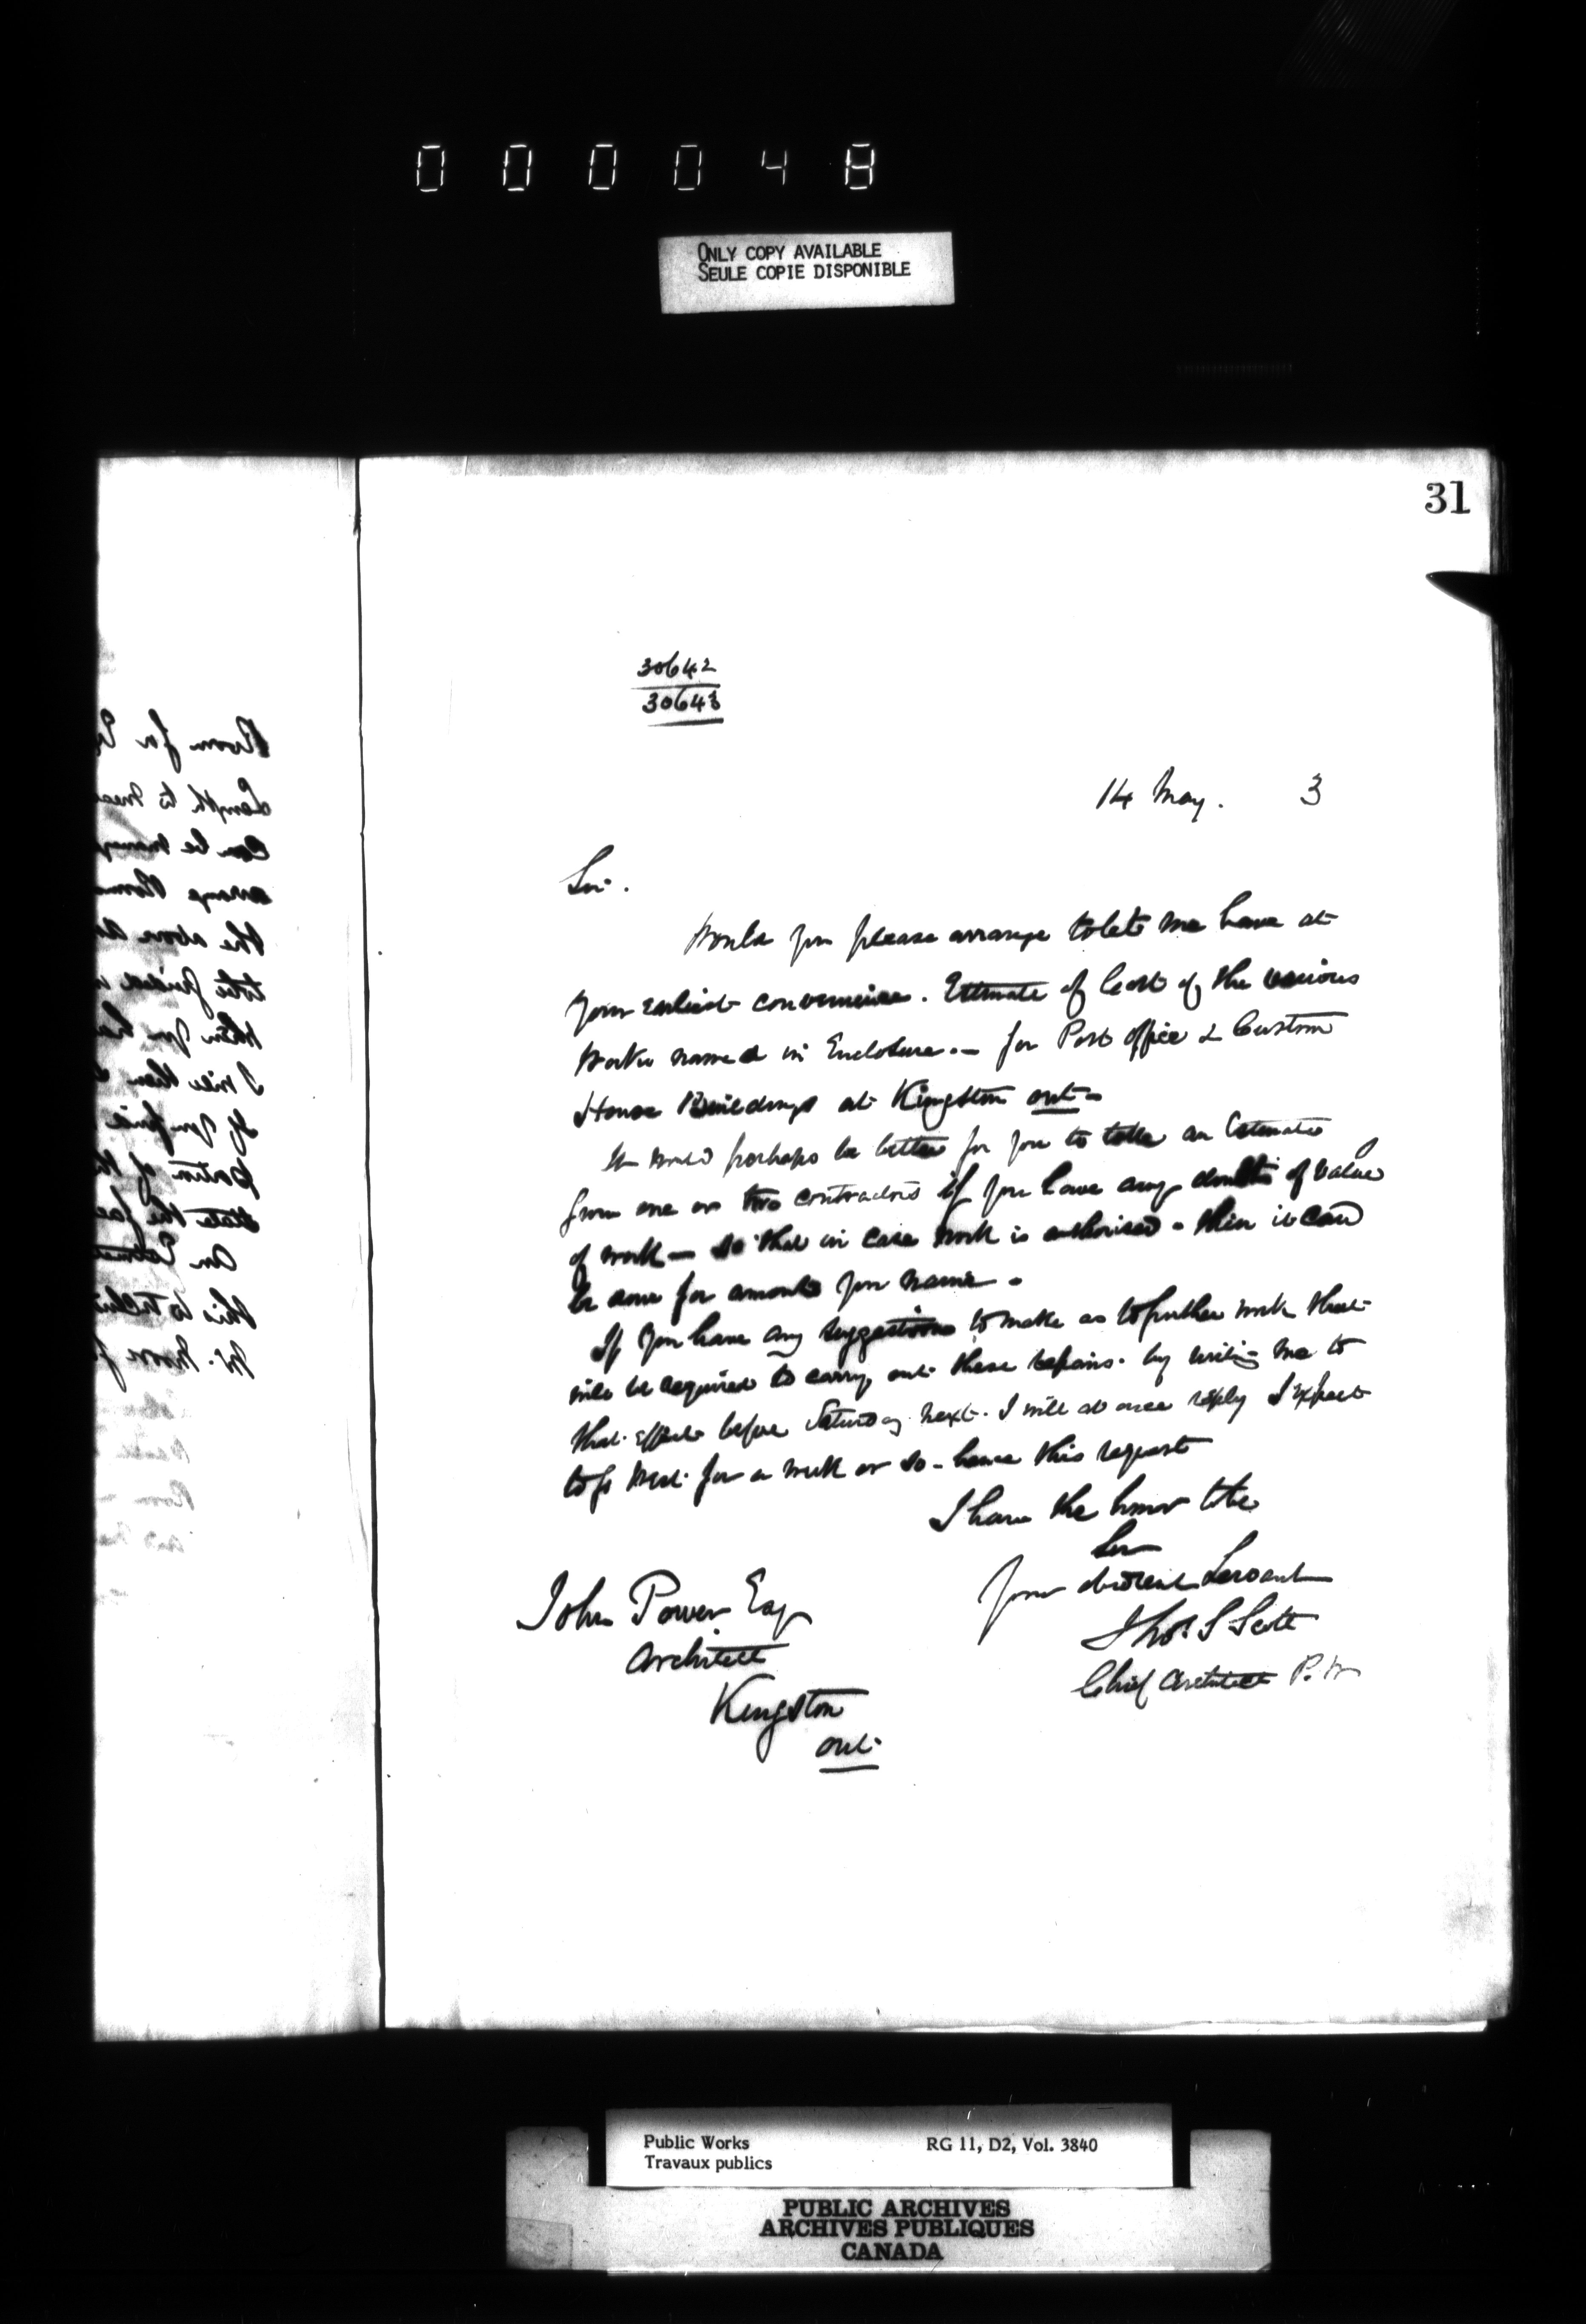 000048
ONLY COPY AVAILABLE
SEULE COPIE DISPONIBLE
31
30642
30643
14 May. 3
Sir.
Would you please arrange to let me have at
your earliest convenience. Estimate of Cost of the various
Works named in Enclosure. - for Post office & Custom
House Buildings at Kingston Ont -
It would perhaps be better for you to take an Estimate
from one or two contractors if you have any doubts of value
of work - so that in case work is authorised - then it can
be done for amount you name -
If you have any suggestions to make as to further work that
will be required to carry out these repairs. by writing me to
that effect before Saturday next. I will at once reply I expect
to go West for a week or so - hence this request
I have the honor to be
Sir
Your obedient Servant
Thos. S Scott
Chief Architect P. W
John Power Esq
Architect
Kingston
Ont.
Room for
Length to
can be
arrange
the above
to be guided
when you
I will then
If you find
portion of the
state the
an
this to
W.
Public Works
Travaux publics
RG 11, D2, Vol. 3840
PUBLIC ARCHIVES
ARCHIVES PUBLIQUES
CANADA